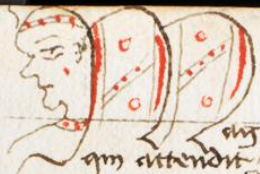 qui attendit